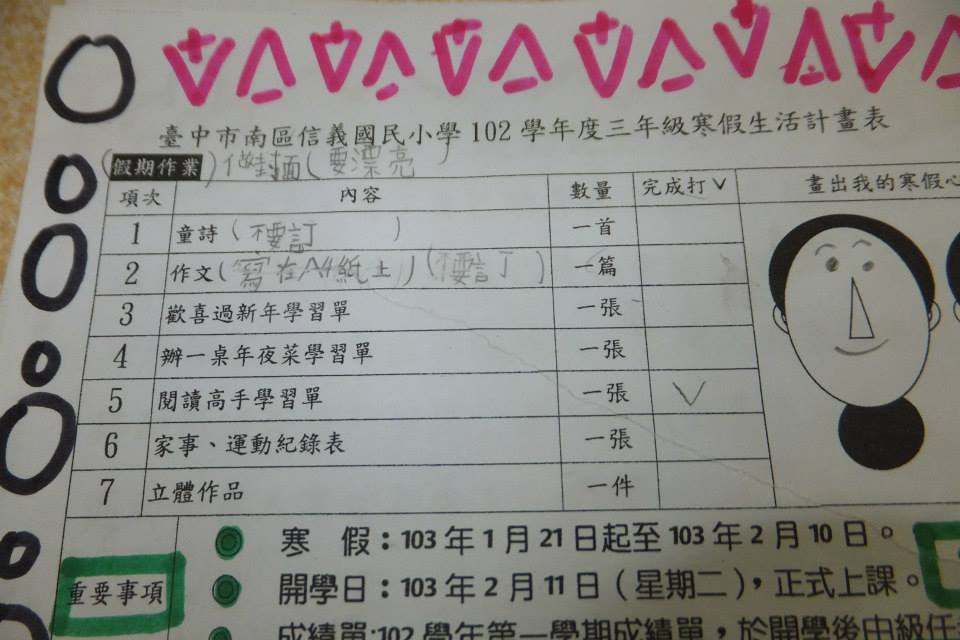 臺中市南區信義國民小學102學年度三年級寒假生活計畫表
(假期作業)做封面(要漂亮)
項次 內容 數量 完成打V 畫出我的寒假心
1 童詩(不要訂 ) 一首
2 作文(寫在A4紙上)(不要訂) 一篇
3 歡喜過新年學習單 一張
4 辦一桌年夜菜學習單 一張
5 閱讀高手學習單 一張 V
6 家事、運動紀錄表 一張
7 立體作品 一件
重要事項
寒 假：103年1月21日起至103年2月10日。
開學日：103年2月11日(星期二)，正式上課。
成績單:102學年第一學期成績單，於開學後由級任